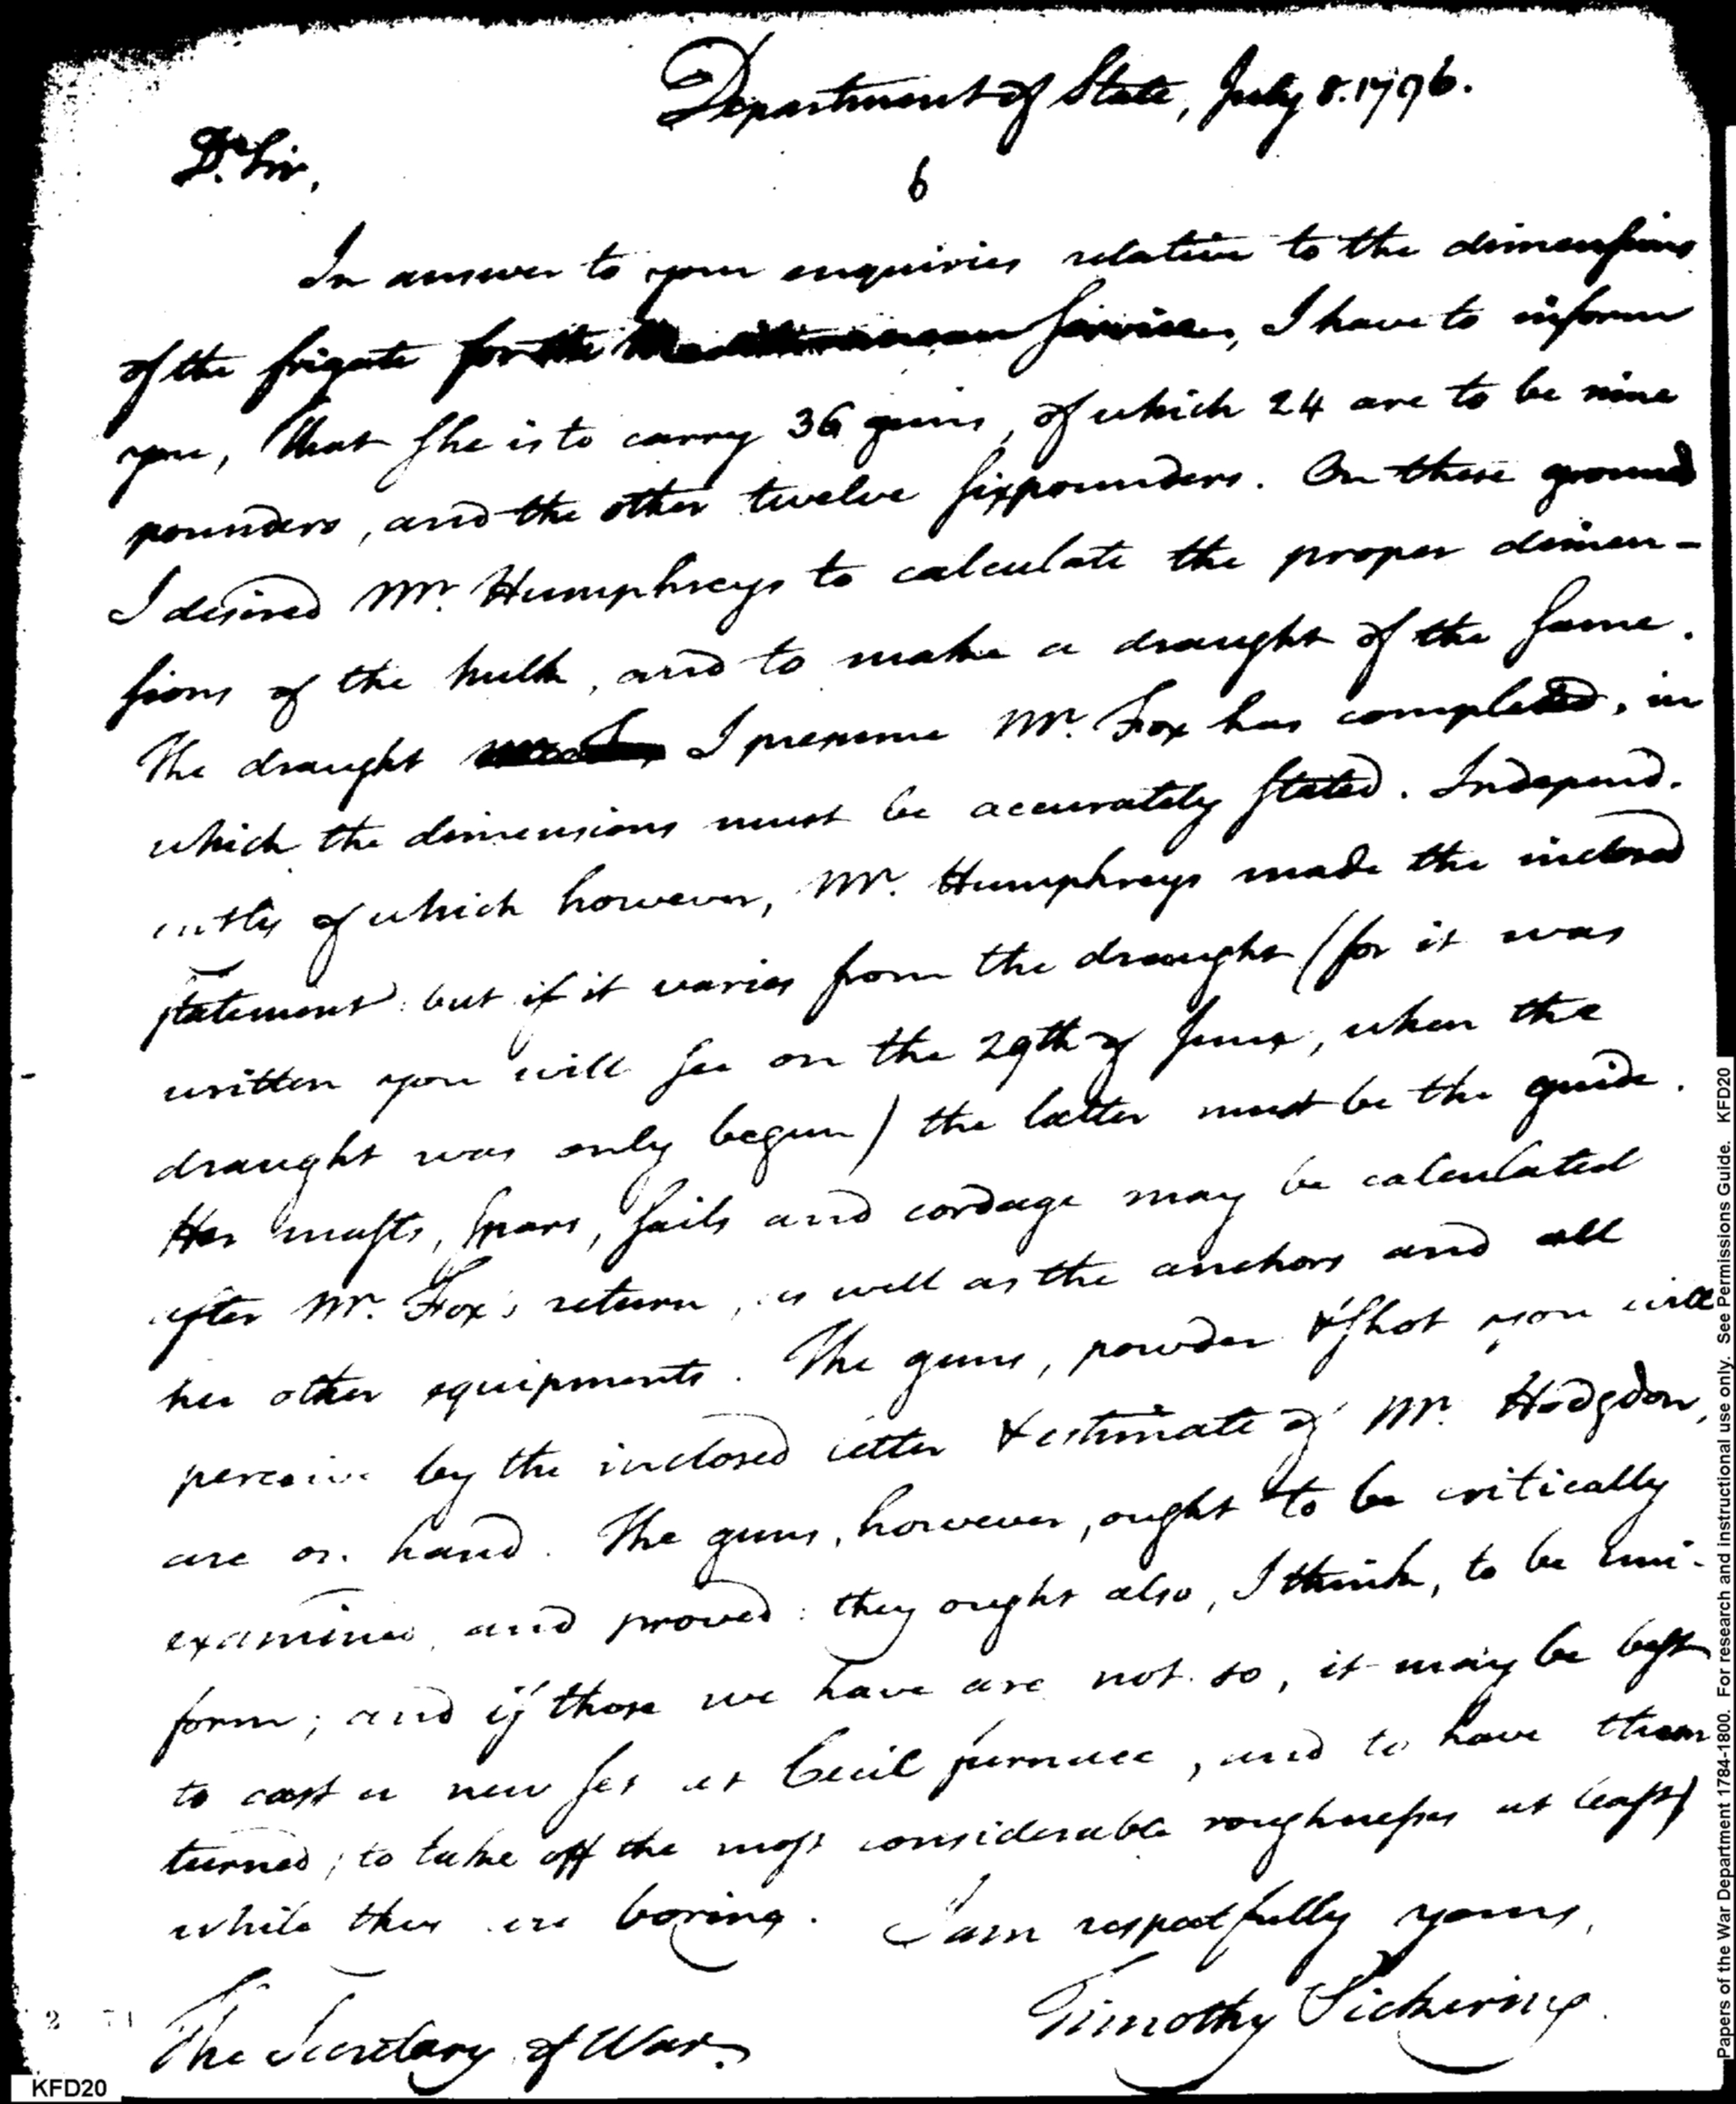 Department of State, July 8. 1796.
Dr. Sir,
6
In answer to your enquiries relative to the dimensions
of the frigate for the Mediterranean service, I have to inform
you, that she is to carry 36 guns, of which 24 are to be nine
pounders, and the other twelve sixpounders. On these ground
I desired Mr. Humphreys to calculate the proper dimen-
sions of the hulk, and to make a draught of the same.
The draught I presume Mr. Fox has completed, in
which the dimensions must be accurately stated. Independ.
ently of which however, Mr. Humphreys made the inclosed
statement: but if it varies from the draught (for it was
written you will see on the 29th of June, when the
draught was only begun) the latter must be the guide.
Her masts, spars, sails and cordage may be calculated
after Mr. Fox's return, as well as the anchors and all
her other equipments. The guns, powder & shot you will
perceive by the inclosed letter & estimate of Mr. Hodgdon,
are on hand. The guns, however, ought to be critically
examined and proved: they ought also, I think, to be uni-
form; and if those we have are not so, it may be best
to cast a new set at Cecil furnace, and to have them
turned, (to take off the most considerable roughnesses at least)
while they are boring. I am respectfully yours,
Timothy Pickering.
The Secretary of War.
2 71
KFD20
Papers of the War Department 1784-1800. For research and instructional use only. See Permissions Guide. KFD20